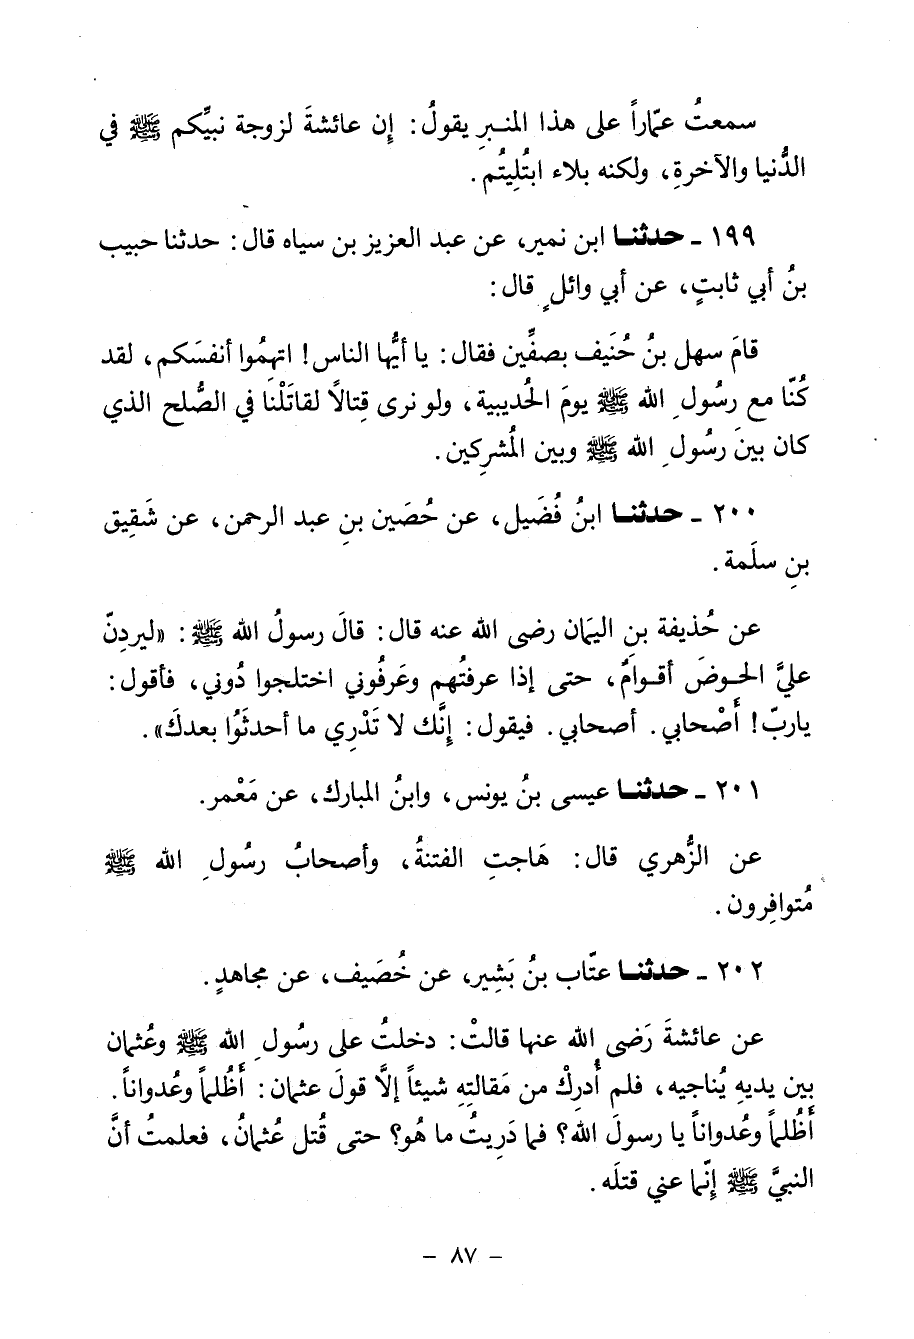 سمعتُ عمّاراً على هذا المنبرِ يقولُ: إن عائشةَ لزوجة نبيِّكم ﷺ في
الدُّنيا والآخرةِ، ولكنه بلاء ابتُلِيتُم.
١٩٩ - حدثنا ابن نمير، عن عبد العزيز بن سياه قال: حدثنا حبيب
بنُ أبي ثابتٍ، عن أبي وائلٍ قال:
قامَ سهل بنُ حُنَيف بصفِّين فقال: يا أيُّها الناس! اتهمُوا أنفسَكم، لقد
كُنّا مع رسُولِ الله ﷺ يومَ الحُديبية، ولو نرى قِتالاً لقاتَلْنَا في الصُّلح الذي
كان بينَ رسُولِ الله ﷺ وبين المُشرِكين.
٢٠٠ - حدثنا ابنُ فُضَيل، عن حُصَين بنِ عبد الرحمن، عن شَقِيق
بنِ سلَمة.
عن حُذيفة بنِ اليمَان رضى الله عنه قال: قالَ رسولُ الله ﷺ: «ليردِنّ
عليَّ الحوضَ أقوامٌ، حتى إذا عرفتُهم وعَرفُوني اختلجوا دُوني، فأقول:
ياربّ! أَصْحابي. أصحابي. فيقول: إنَّك لا تَدْرِي ما أحدثَوُا بعدكَ».
٢٠١ - حدثنا عيسى بنُ يونس، وابنُ المبارك، عن مَعْمر.
عن الزُّهري قال: هَاجتِ الفتنةُ، وأصحابُ رسُولِ الله ﷺ
مُتوافِرون.
٢٠٢ - حدثنا عتّاب بنُ بَشِير، عن خُصَيف، عن مجاهدٍ.
عن عائشةَ رَضى الله عنها قالتْ: دخلتُ على رسُولِ الله ﷺ وعُثمان
بين يديهِ يُناجيه، فلم أُدرِكْ من مَقالتِهِ شيئاً إلَّا قولَ عثمان: أَظُلماً وعُدواناً.
أَظُلماً وعُدواناً يا رسولَ الله؟ فما دَرِيتُ ما هُو؟ حتى قُتل عُثمانُ، فعلمتُ أنَّ
النبيَّ ﷺ إنّما عني قتلَه.
- ٨٧ -